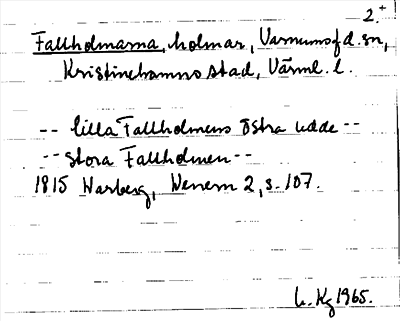 2.+
Fallholmarna, holmar, Varnums f.d. sn,
Kristinehamns stad, Värml. l.
-- lilla Fallholmens östra udde --
-- Stora Fallholmen --
1815 Warberg, Wenern 2, s. 107.
L. Kg 1965.